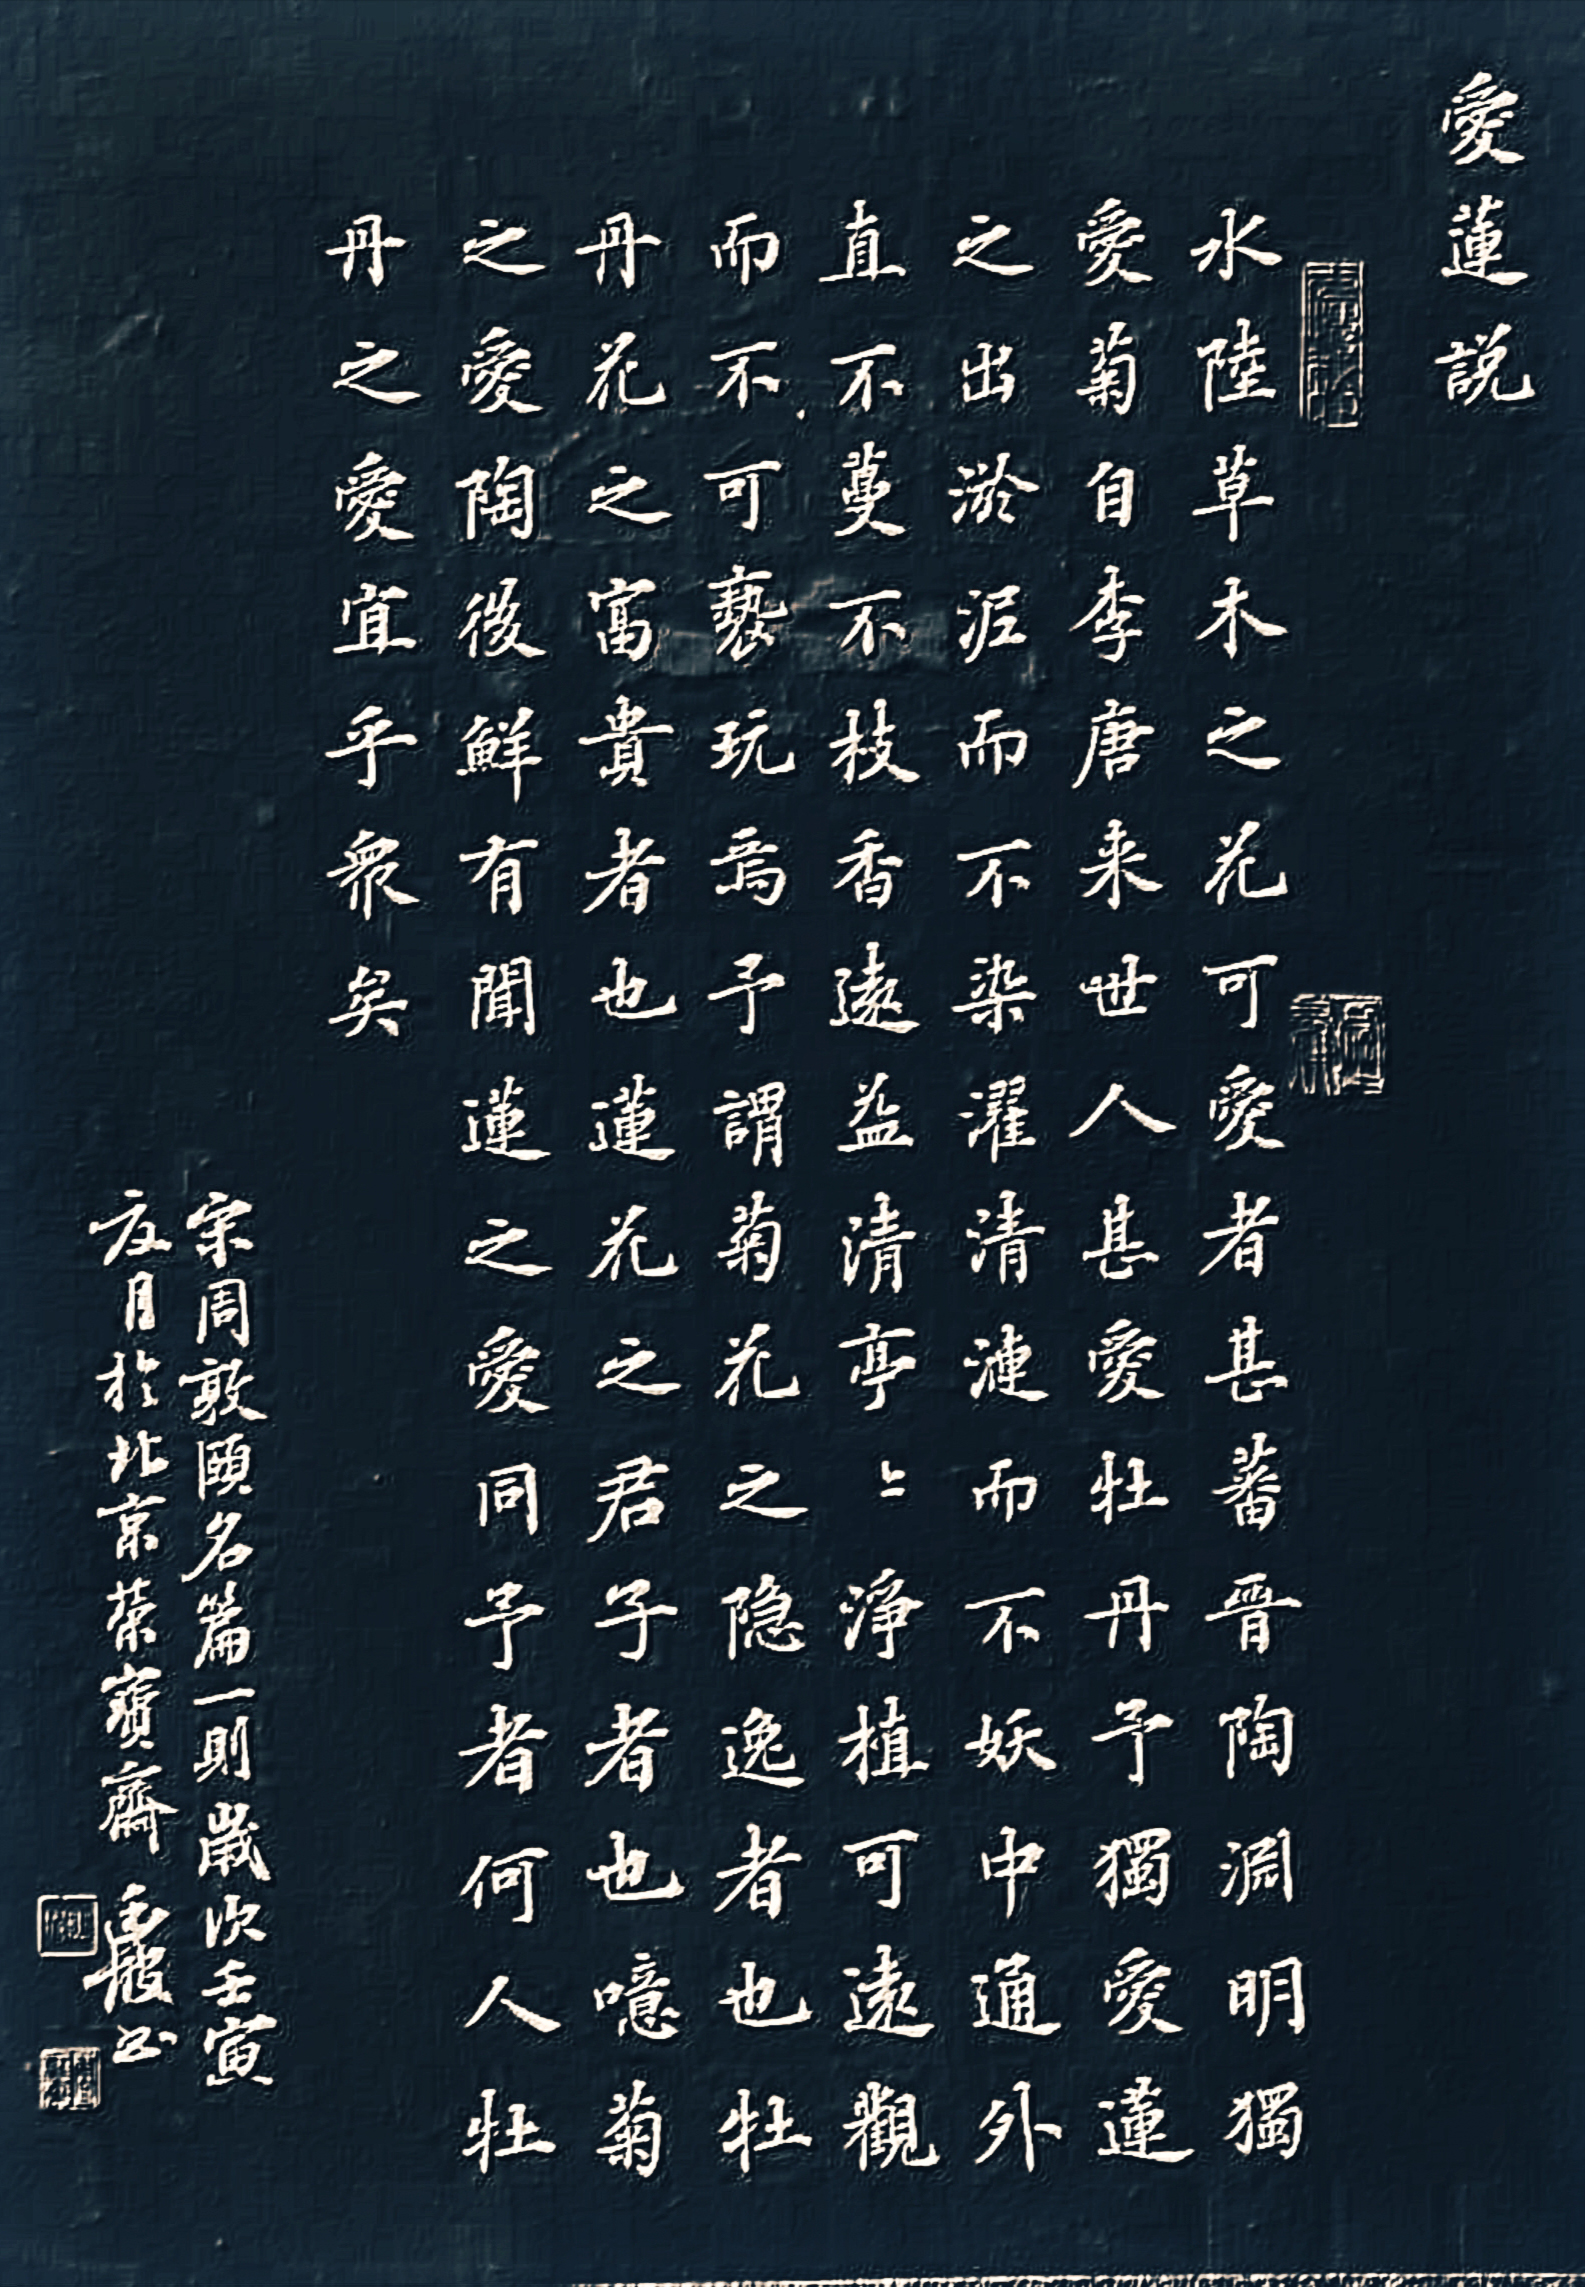 愛蓮説
水陸草木之花可愛者甚蕃晉陶淵明獨
愛菊自李唐来世人甚愛牡丹予獨愛蓮
之出淤泥而不染濯清漣而不妖中通外
直不蔓不枝香遠益清亭〻淨植可遠觀
而不可褻玩焉予謂菊花之隐逸者也牡
丹花之富貴者也蓮花之君子者也噫菊
之愛陶後鮮有聞蓮之愛同予者何人牡
丹之愛宜乎衆矣
宗周敦頤名篇一則歲次壬寅
夜月於北京榮寶齋